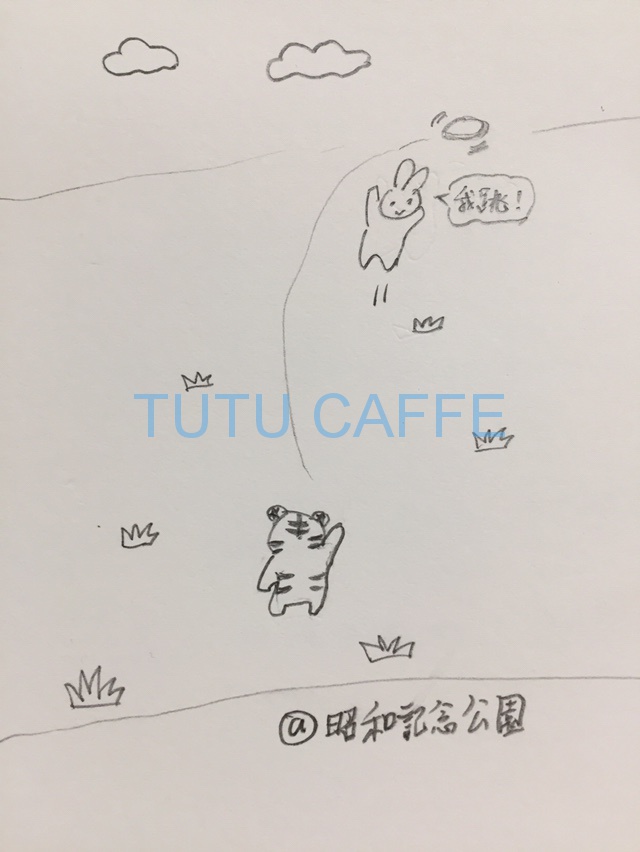 我跳！
TUTU CAFFE
@昭和記念公園